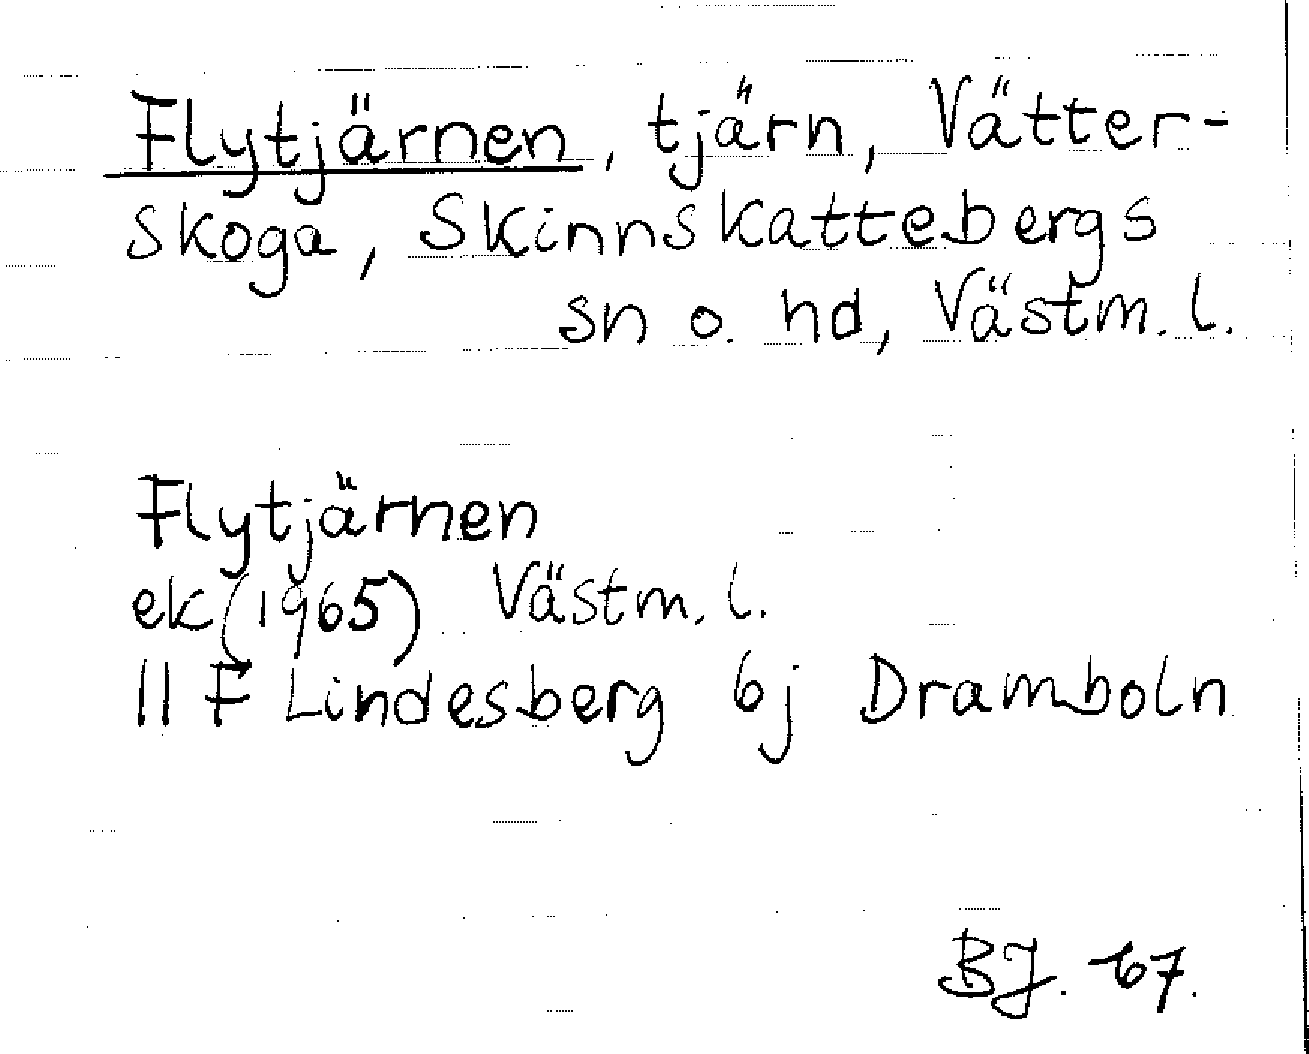 Flytjärnen, tjärn, Vätter-
skoga, Skinnskattebergs
sn o. hd, Västm. l.
Flytjärnen
ek (1965) Västm. l.
11 F Lindesberg 6j Dramboln
BJ. 67.